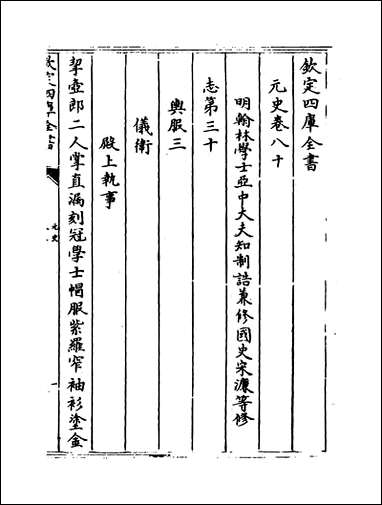 欽定四庫全書
元史卷八十
明翰林學士亞中大夫知制誥兼修國史宋濂等修
志第三十
輿服三
儀衛
殿上執事
挈壺郎二人掌直漏刻冠學士㡌服紫羅窄袖衫塗金
欽定四庫全書
元史
一